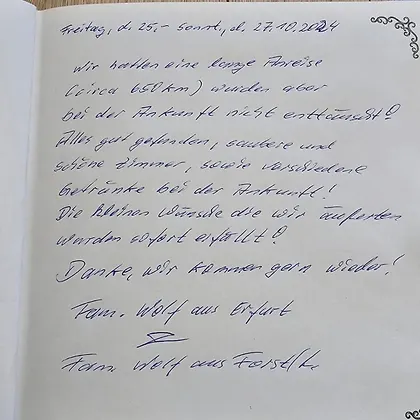 Freitag, d. 25,- Sonnt., d. 27.10.2024
Wir hatten eine lange Anreise
(circa 650 km) wurden aber
bei der Ankunft nicht enttäuscht!
Alles gut gefunden, saubere und
schöne Zimmer, sowie verschiedene
Getränke bei der Ankunft!
Die kleinen Wünsche die wir äußerten
wurden sofort erfüllt!
Danke, wir kommen gern wieder!
Fam. Wolf aus Erfurt
Fam. Wolf aus Forst/L.